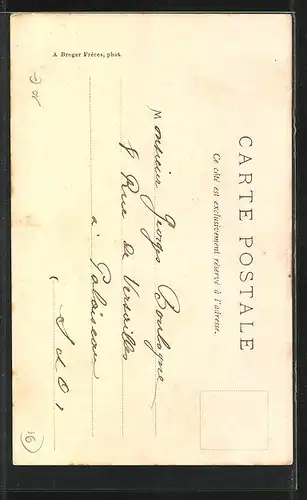 CARTE POSTALE
Ce côté est exclusivement réservé à l'adresse.
Monsieur Georges Boulogne
8 Rue de Versailles
à Palaiseau
(S et O)
A Breger Frères, phot.
16